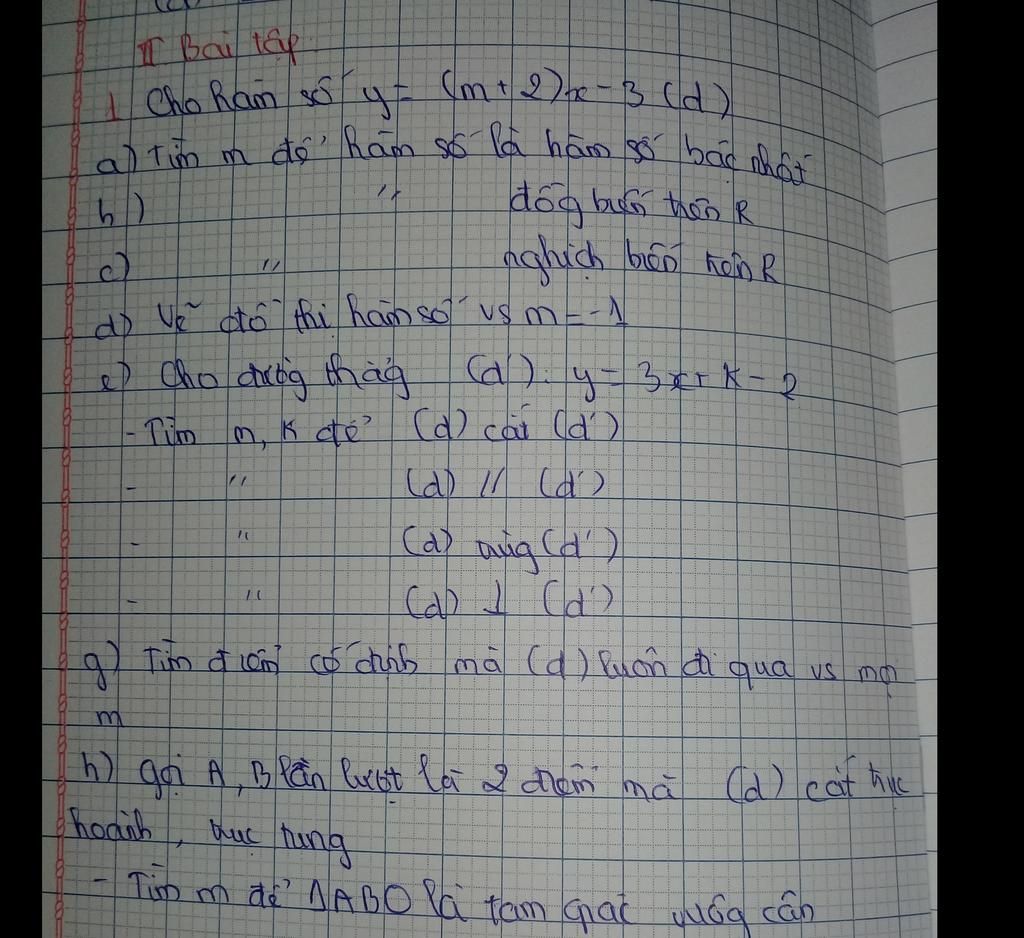 II Bài tập
1 Cho hàm số y = (m+2)x - 3 (d)
a) Tìm m để hàm số là hàm số bậc nhất
b) " đồg biến trên R
c) " nghịch biến trên R
d) Vẽ đồ thị hàm số vs m = -1
e) Cho đườg thẳg (d'): y = 3x + K - 2
- Tìm m, K để (d) cắt (d')
- " (d) // (d')
- " (d) trùg (d')
- " (d) ⊥ (d')
g) Tìm điểm cố định mà (d) luôn đi qua vs mọi
m
h) gọi A, B lần lượt là 2 điểm mà (d) cắt trục
hoành, trục tung
- Tìm m để ΔABO là tam giác vuôg cân